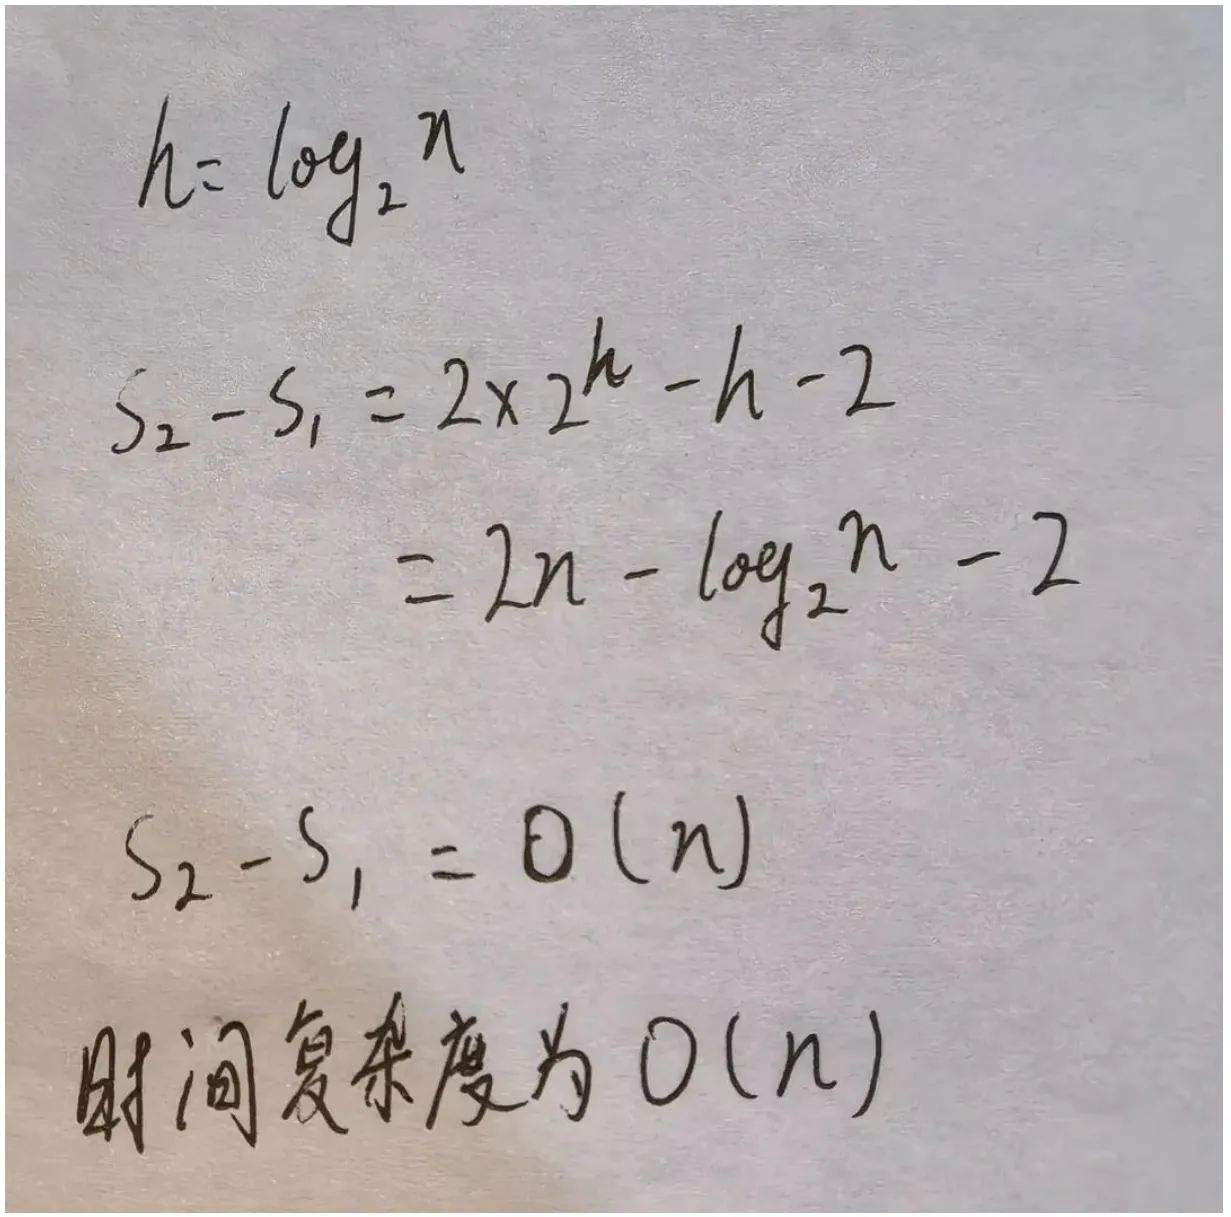 h = log₂ n
S₂ - S₁ = 2 × 2ʰ - h - 2
= 2n - log₂ n - 2
S₂ - S₁ = O(n)
时间复杂度为 O(n)